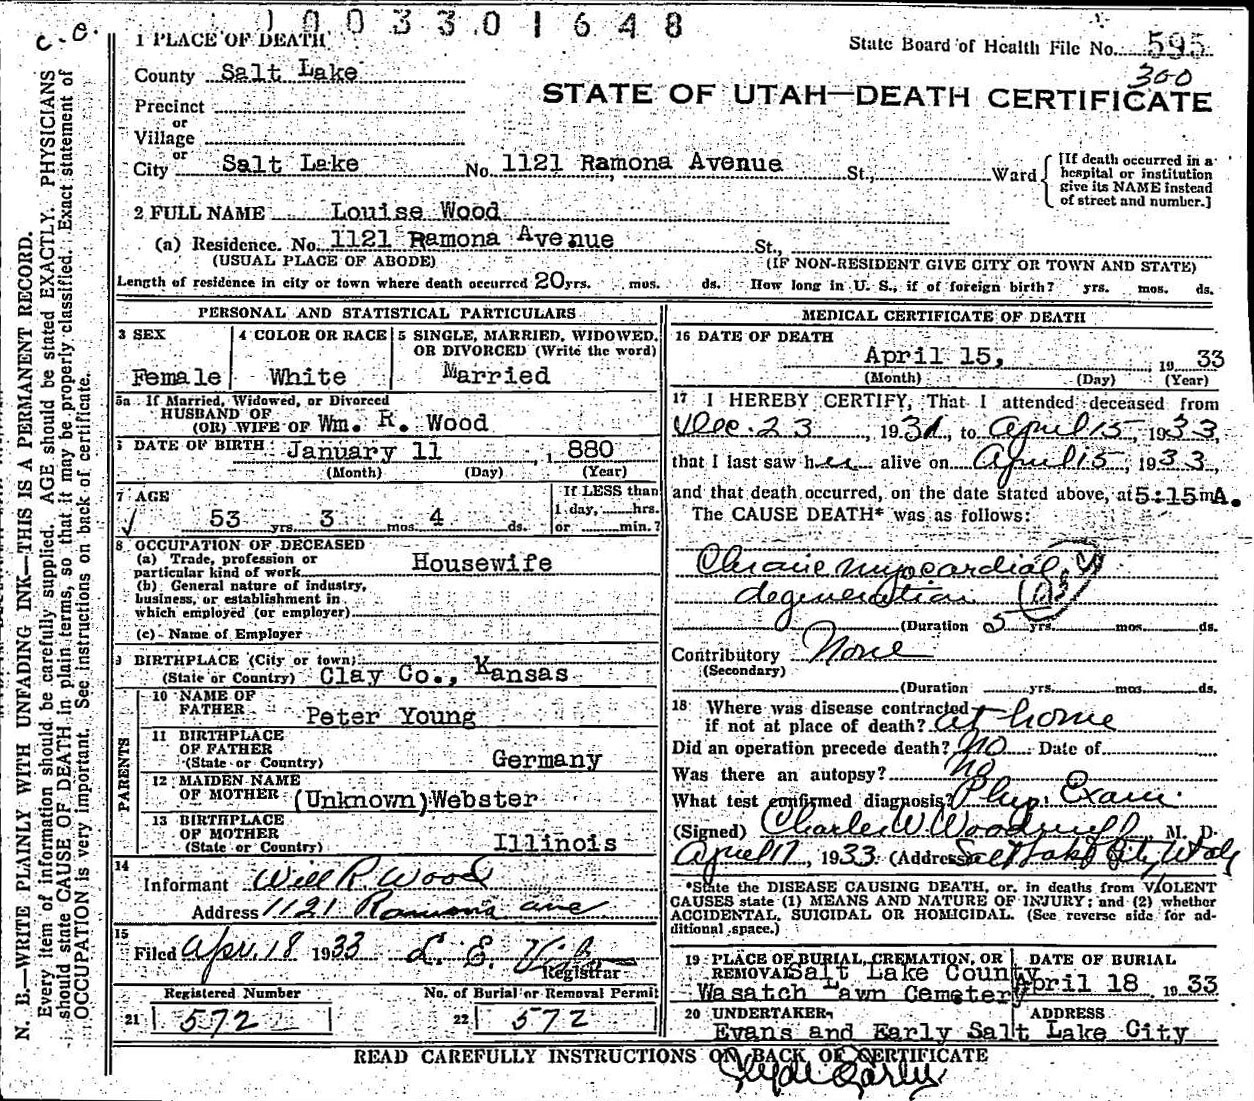 1003301648
C. O.
1 PLACE OF DEATH
State Board of Health File No. 595
300
County Salt Lake
STATE OF UTAH—DEATH CERTIFICATE
Precinct
or
Village
or
City Salt Lake No. 1121 Ramona Avenue St., Ward
[If death occurred in a
hospital or institution
give its NAME instead
of street and number.]
2 FULL NAME Louise Wood
(a) Residence. No. 1121 Ramona Avenue St.,
(USUAL PLACE OF ABODE) (IF NON-RESIDENT GIVE CITY OR TOWN AND STATE)
Length of residence in city or town where death occurred 20 yrs. mos. ds. How long in U. S., if of foreign birth? yrs. mos. ds.
PERSONAL AND STATISTICAL PARTICULARS
3 SEX
Female
4 COLOR OR RACE
White
5 SINGLE, MARRIED, WIDOWED,
OR DIVORCED (Write the word)
Married
5a If Married, Widowed, or Divorced
HUSBAND OF
(OR) WIFE OF Wm. R. Wood
6 DATE OF BIRTH January 11 1 880
(Month) (Day) (Year)
7 AGE
53 yrs. 3 mos. 4 ds.
If LESS than
1 day, hrs.
or min.?
8 OCCUPATION OF DECEASED
(a) Trade, profession or
particular kind of work Housewife
(b) General nature of industry,
business, or establishment in
which employed (or employer)
(c) Name of Employer
9 BIRTHPLACE (City or town)
(State or Country) Clay Co., Kansas
PARENTS
10 NAME OF
FATHER Peter Young
11 BIRTHPLACE
OF FATHER
(State or Country) Germany
12 MAIDEN NAME
OF MOTHER (Unknown) Webster
13 BIRTHPLACE
OF MOTHER
(State or Country) Illinois
14
Informant Will R Wood
Address 1121 Ramona ave
15
Filed Apr. 18 1933
Registrar
Registered Number
21 572
No. of Burial or Removal Permit
22 572
MEDICAL CERTIFICATE OF DEATH
16 DATE OF DEATH
April 15, 19 33
(Month) (Day) (Year)
17 I HEREBY CERTIFY, That I attended deceased from
Dec. 23, 1931, to April 15, 1933,
that I last saw her alive on April 15, 1933,
and that death occurred, on the date stated above, at 5:15 m A.
The CAUSE DEATH* was as follows:
Chronic myocardial
degeneration
(Duration 5 yrs. mos. ds.
Contributory None
(Secondary)
(Duration yrs. mos. ds.
18 Where was disease contracted
if not at place of death? at home
Did an operation precede death? No Date of
Was there an autopsy? No
What test confirmed diagnosis? Phys. Exam.
(Signed) Charles W Woodruff, M. D.
April 17, 1933 (Address Salt Lake City Utah
*State the DISEASE CAUSING DEATH, or, in deaths from VIOLENT
CAUSES state (1) MEANS AND NATURE OF INJURY; and (2) whether
ACCIDENTAL, SUICIDAL OR HOMICIDAL. (See reverse side for ad-
ditional space.)
19 PLACE OF BURIAL, CREMATION, OR
REMOVAL Salt Lake County
Wasatch Lawn Cemetery
DATE OF BURIAL
April 18, 19 33
20 UNDERTAKER,
Evans and Early
ADDRESS
Salt Lake City
READ CAREFULLY INSTRUCTIONS ON BACK OF CERTIFICATE
Clyde Early
N. B.—WRITE PLAINLY WITH UNFADING INK—THIS IS A PERMANENT RECORD.
Every item of information should be carefully supplied. AGE should be stated EXACTLY. PHYSICIANS
should state CAUSE OF DEATH in plain terms, so that it may be properly classified. Exact statement of
OCCUPATION is very important. See instructions on back of certificate.